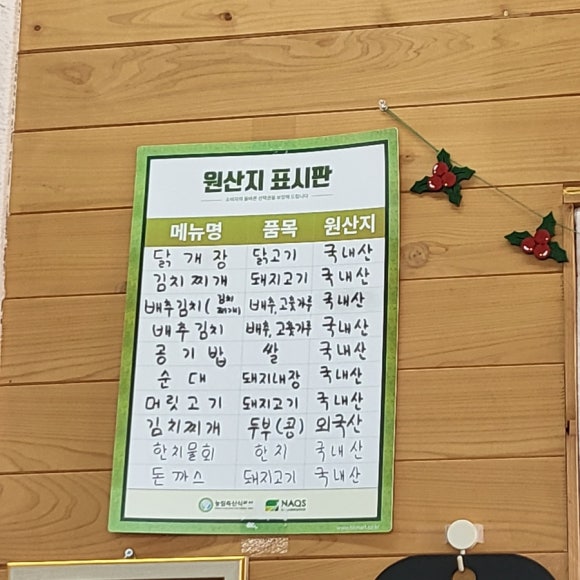 원산지 표시판
소비자의 올바른 선택권을 보장해 드립니다
메뉴명 품목 원산지
닭개장 닭고기 국내산
김치찌개 돼지고기 국내산
배추김치(김치찌개) 배추,고춧가루 국내산
배추김치 배추,고춧가루 국내산
공기밥 쌀 국내산
순대 돼지내장 국내산
머릿고기 돼지고기 국내산
김치찌개 두부(콩) 외국산
한치물회 한치 국내산
돈까스 돼지고기 국내산
농림축산식품부 NAQS